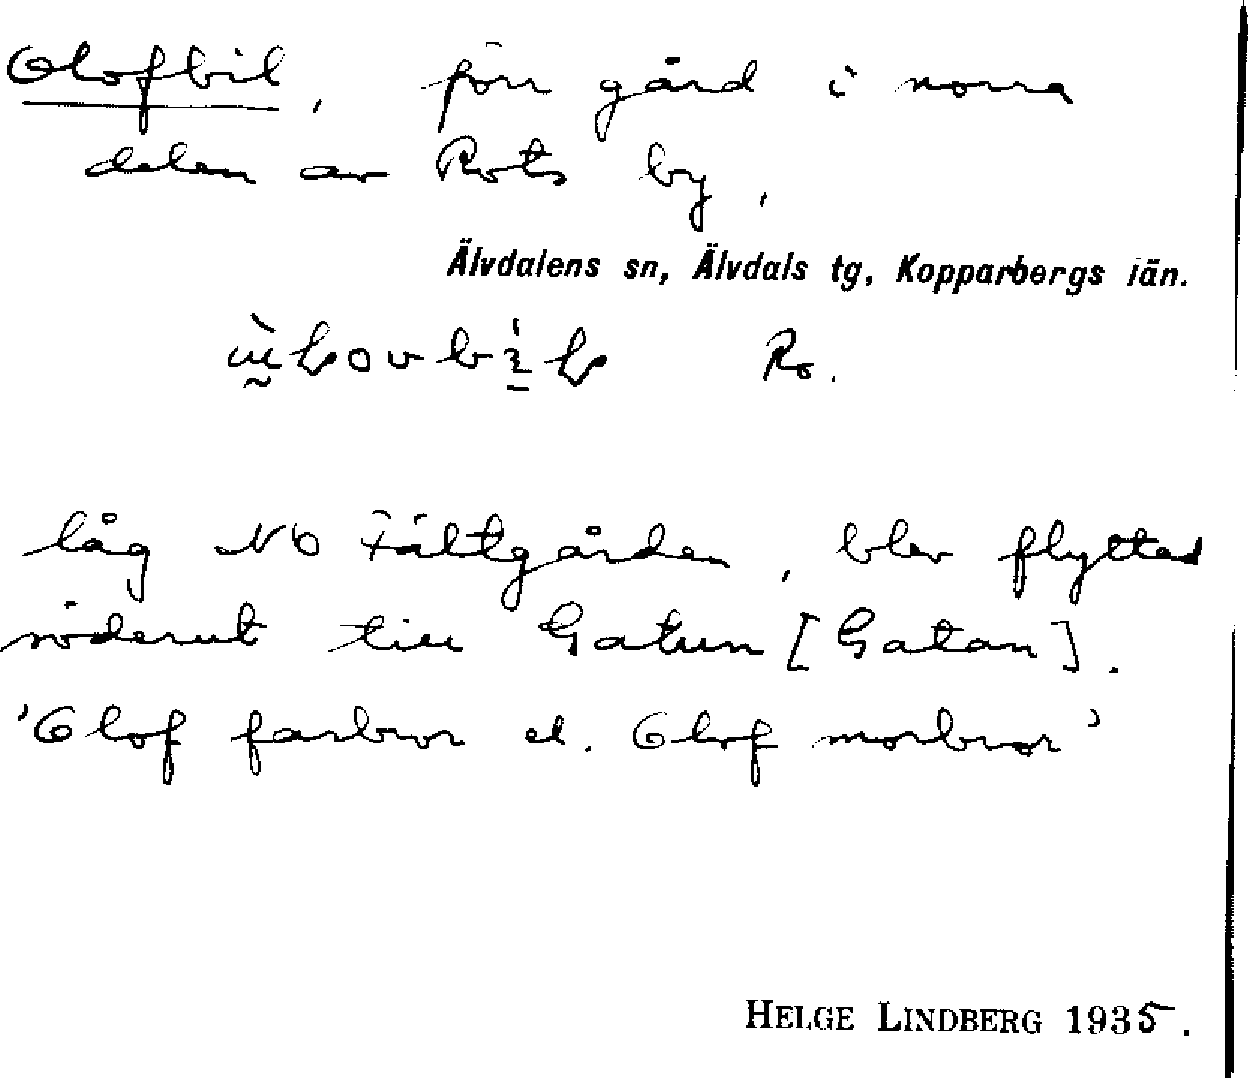 Olofbil, förr gård i norra
delen av Rots by,
Älvdalens sn, Älvdals tg, Kopparbergs län.
Ro.
låg NO Fältgården, blev flyttad
söderut till Gatun [Gatan].
'Olof farbror el. Olof morbror'
HELGE LINDBERG 1935.